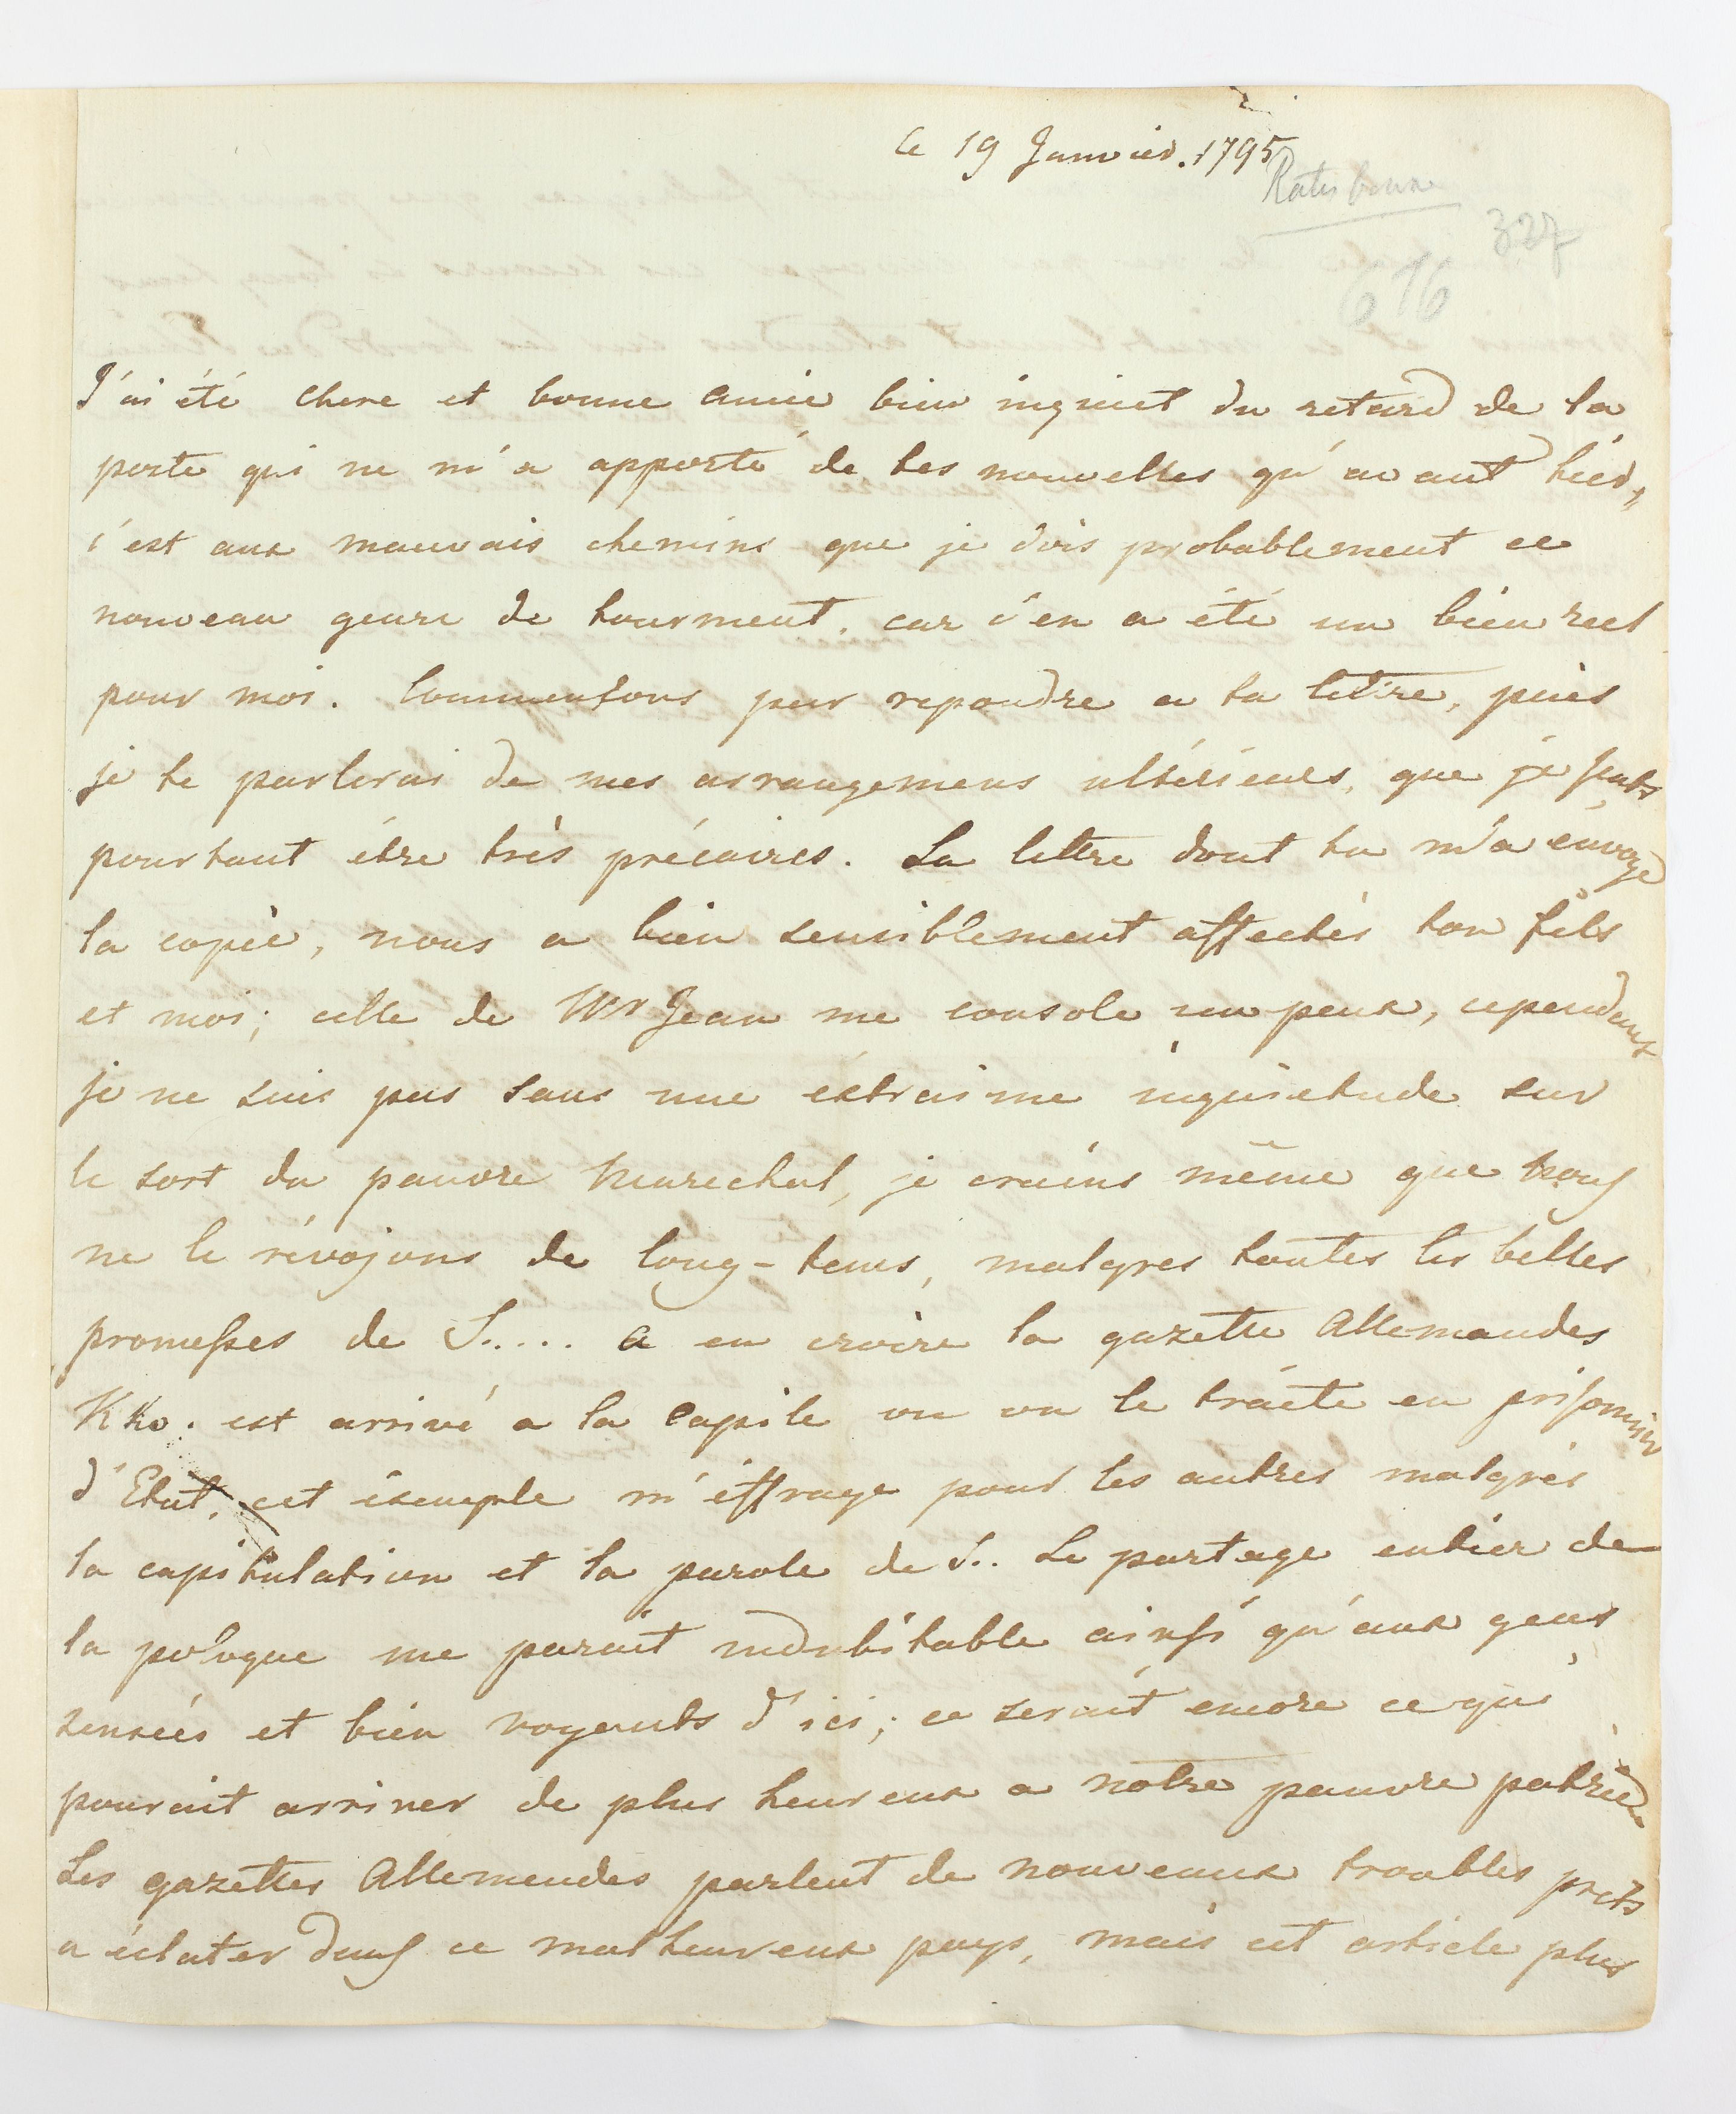 le 19 Janvier. 1795
Ratisbonne
327
616
J'ai été chere et bonne amie bien inquiet du retard de la
poste qui ne m'a apporté de tes nouvelles qu'avant hier,
c'est aux mauvais chemins que je dois probablement ce
nouveau genre de tourment, car s'en a été un bien reel
pour moi. Commensons par repondre a ta lettre, puis
je te parlerai de mes arrangemens ultérieurs, que je sents
pourtant étre très précaires. La lettre dont tu m'a envoyé
la copie, nous a bien sensiblement affectés ton fils
et moi; celle de Mr Jean me console un peux, cependant
je ne suis pas sans une éxtraime inquietude sur
le sort du pauvre Marechal, je crains même que nous
ne le révojons de long-tems, malgres toutes les belles
promesses de S.... a en croire la gazette Allemandes
Kko. est arrivé a la Capile ou on le traite en prisonnier
d'Etat, cet éxemple m'éffraye pour les autres malgrés
la capitulation et la parole de S.. Le partage entier de
la pologne me parait indubitable ainsi qu'aux gens
sensées et bien voyants d'ici; ce serait encore ce qui
pourait arriver de plus heureux a notre pauvre patrie.
Les gazettes Allemendes parlent de nouveaux troubles prets
a éclater dans ce malheureux pays, mais cet article plus